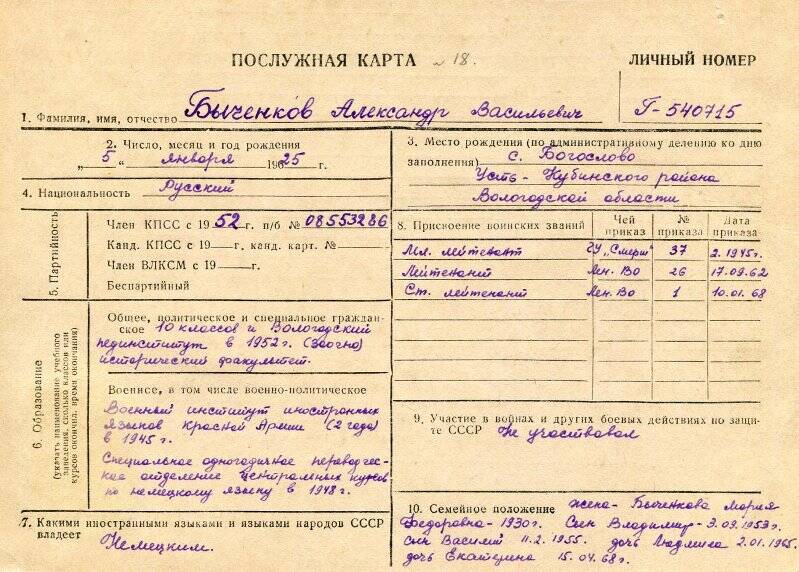 ПОСЛУЖНАЯ КАРТА № 18.
ЛИЧНЫЙ НОМЕР
1. Фамилия, имя, отчество Быченков Александр Васильевич
Г-540715
2. Число, месяц и год рождения
„5“ января 1925 г.
3. Место рождения (по административному делению ко дню
заполнения) с. Богослово
Усть-Кубинского района
Вологодской области
4. Национальность Русский
5. Партийность
Член КПСС с 1952 г. п/б № 08553286
Канд. КПСС с 19— г. канд. карт. №—
Член ВЛКСМ с 19—г.
Беспартийный
8. Присвоение воинских званий
Чей приказ
№ приказа
Дата приказа
Мл. лейтенант ГУ „Смерш“ 37 2.1945г.
Лейтенант Лен. ВО 26 17.09.62
Ст. лейтенант Лен. ВО 1 10.01.68
6. Образование
(указать наименование учебного
заведения, сколько классов или
курсов окончил, время окончания)
Общее, политическое и специальное граждан-
ское 10 классов и Вологодский
пединститут в 1952г. (заочно)
исторический факультет.
Военное, в том числе военно-политическое
Военный институт иностранных
языков Красной Армии (2 года)
в 1945 г.
Специальное одногодичное переводчес-
кое отделение центральных курсов
по немецкому языку в 1948г.
9. Участие в войнах и других боевых действиях по защи-
те СССР Не участвовал
7. Какими иностранными языками и языками народов СССР
владеет Немецким.
10. Семейное положение жена-Быченкова Мария
Федоровна-1930г. Сын Владимир-3.09.1953г.
сын Василий 11.2.1955. дочь Людмила 2.01.1965.
дочь Екатерина 15.04.68г.